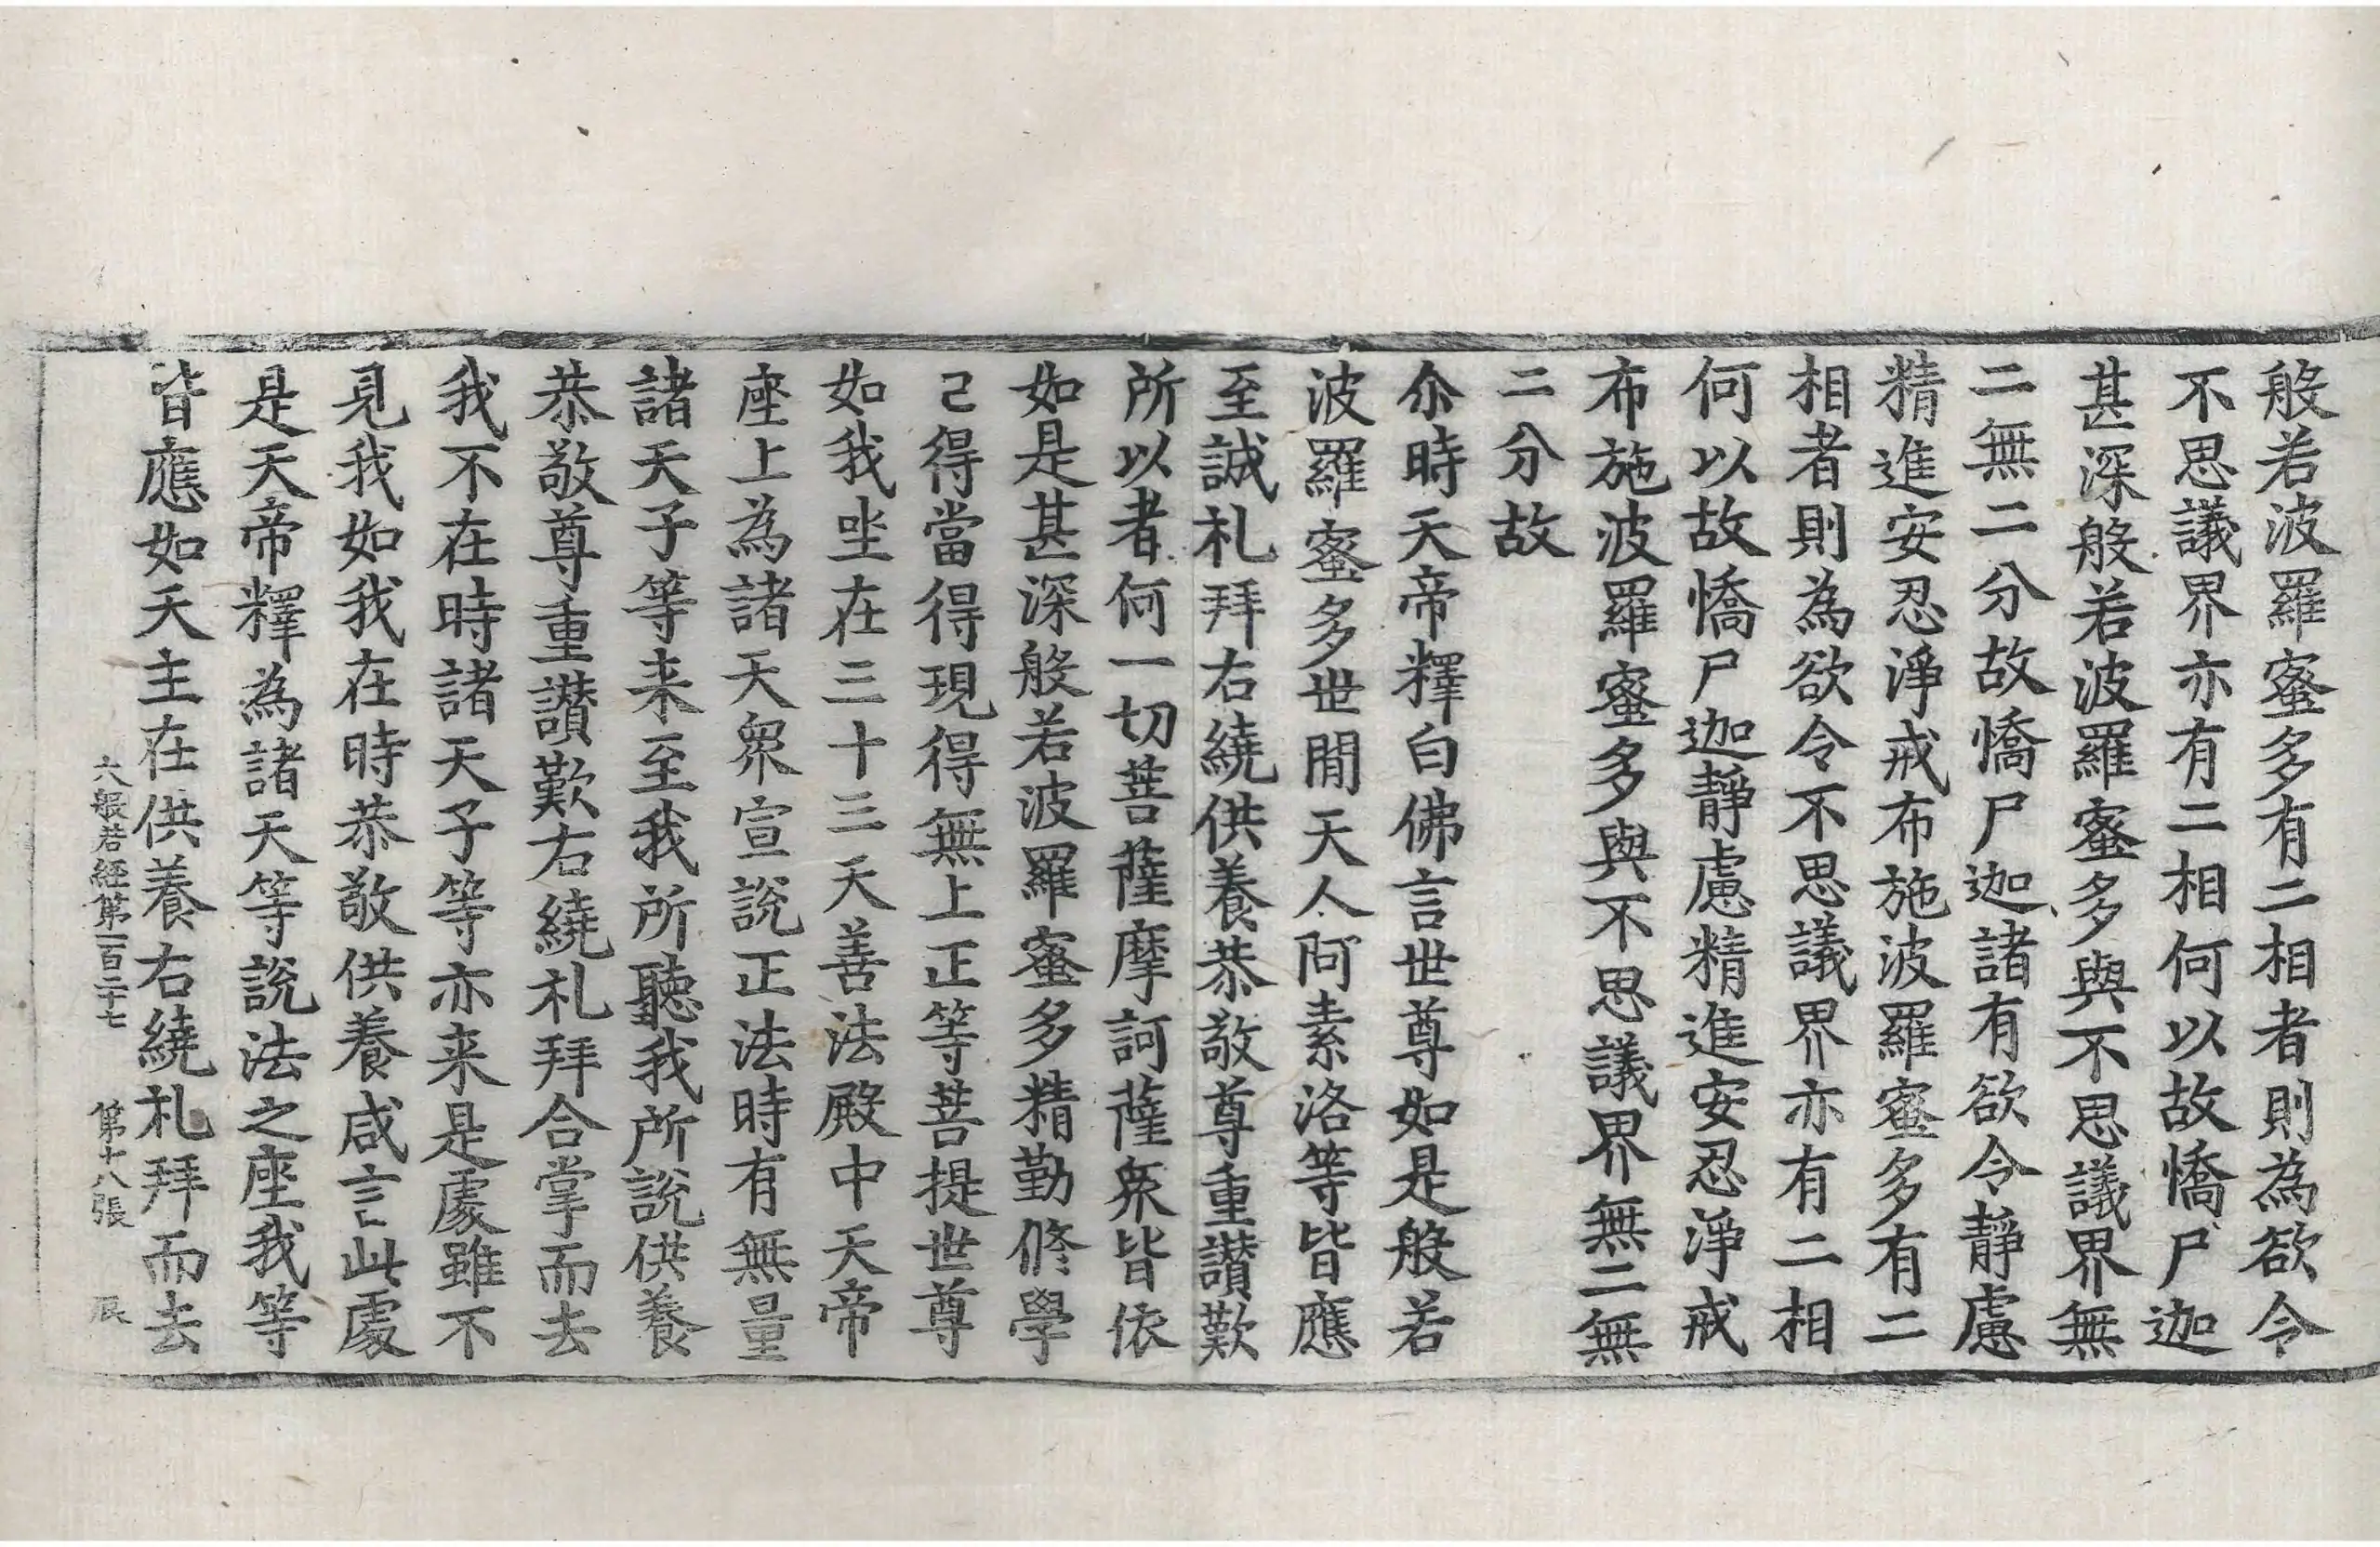 般若波羅蜜多有二相者則為欲令
不思議界亦有二相何以故憍尸迦
甚深般若波羅蜜多與不思議界無
二無二分故憍尸迦諸有欲令靜慮
精進安忍淨戒布施波羅蜜多有二
相者則為欲令不思議界亦有二相
何以故憍尸迦靜慮精進安忍淨戒
布施波羅蜜多與不思議界無二無
二分故
尒時天帝釋白佛言世尊如是般若
波羅蜜多世間天人阿素洛等皆應
至誠札拜右繞供養恭敬尊重讃歎
所以者何一切菩薩摩訶薩衆皆依
如是甚深般若波羅蜜多精勤修學
已得當得現得無上正等菩提世尊
如我坐在三十三天善法殿中天帝
座上為諸天衆宣說正法時有無量
諸天子等来至我所聽我所說供養
恭敬尊重讃歎右繞札拜合掌而去
我不在時諸天子等亦来是處雖不
見我如我在時恭敬供養咸言此處
是天帝釋為諸天等說法之座我等
皆應如天主在供養右繞札拜而去
大般若経第一百二十七 第十八張 辰